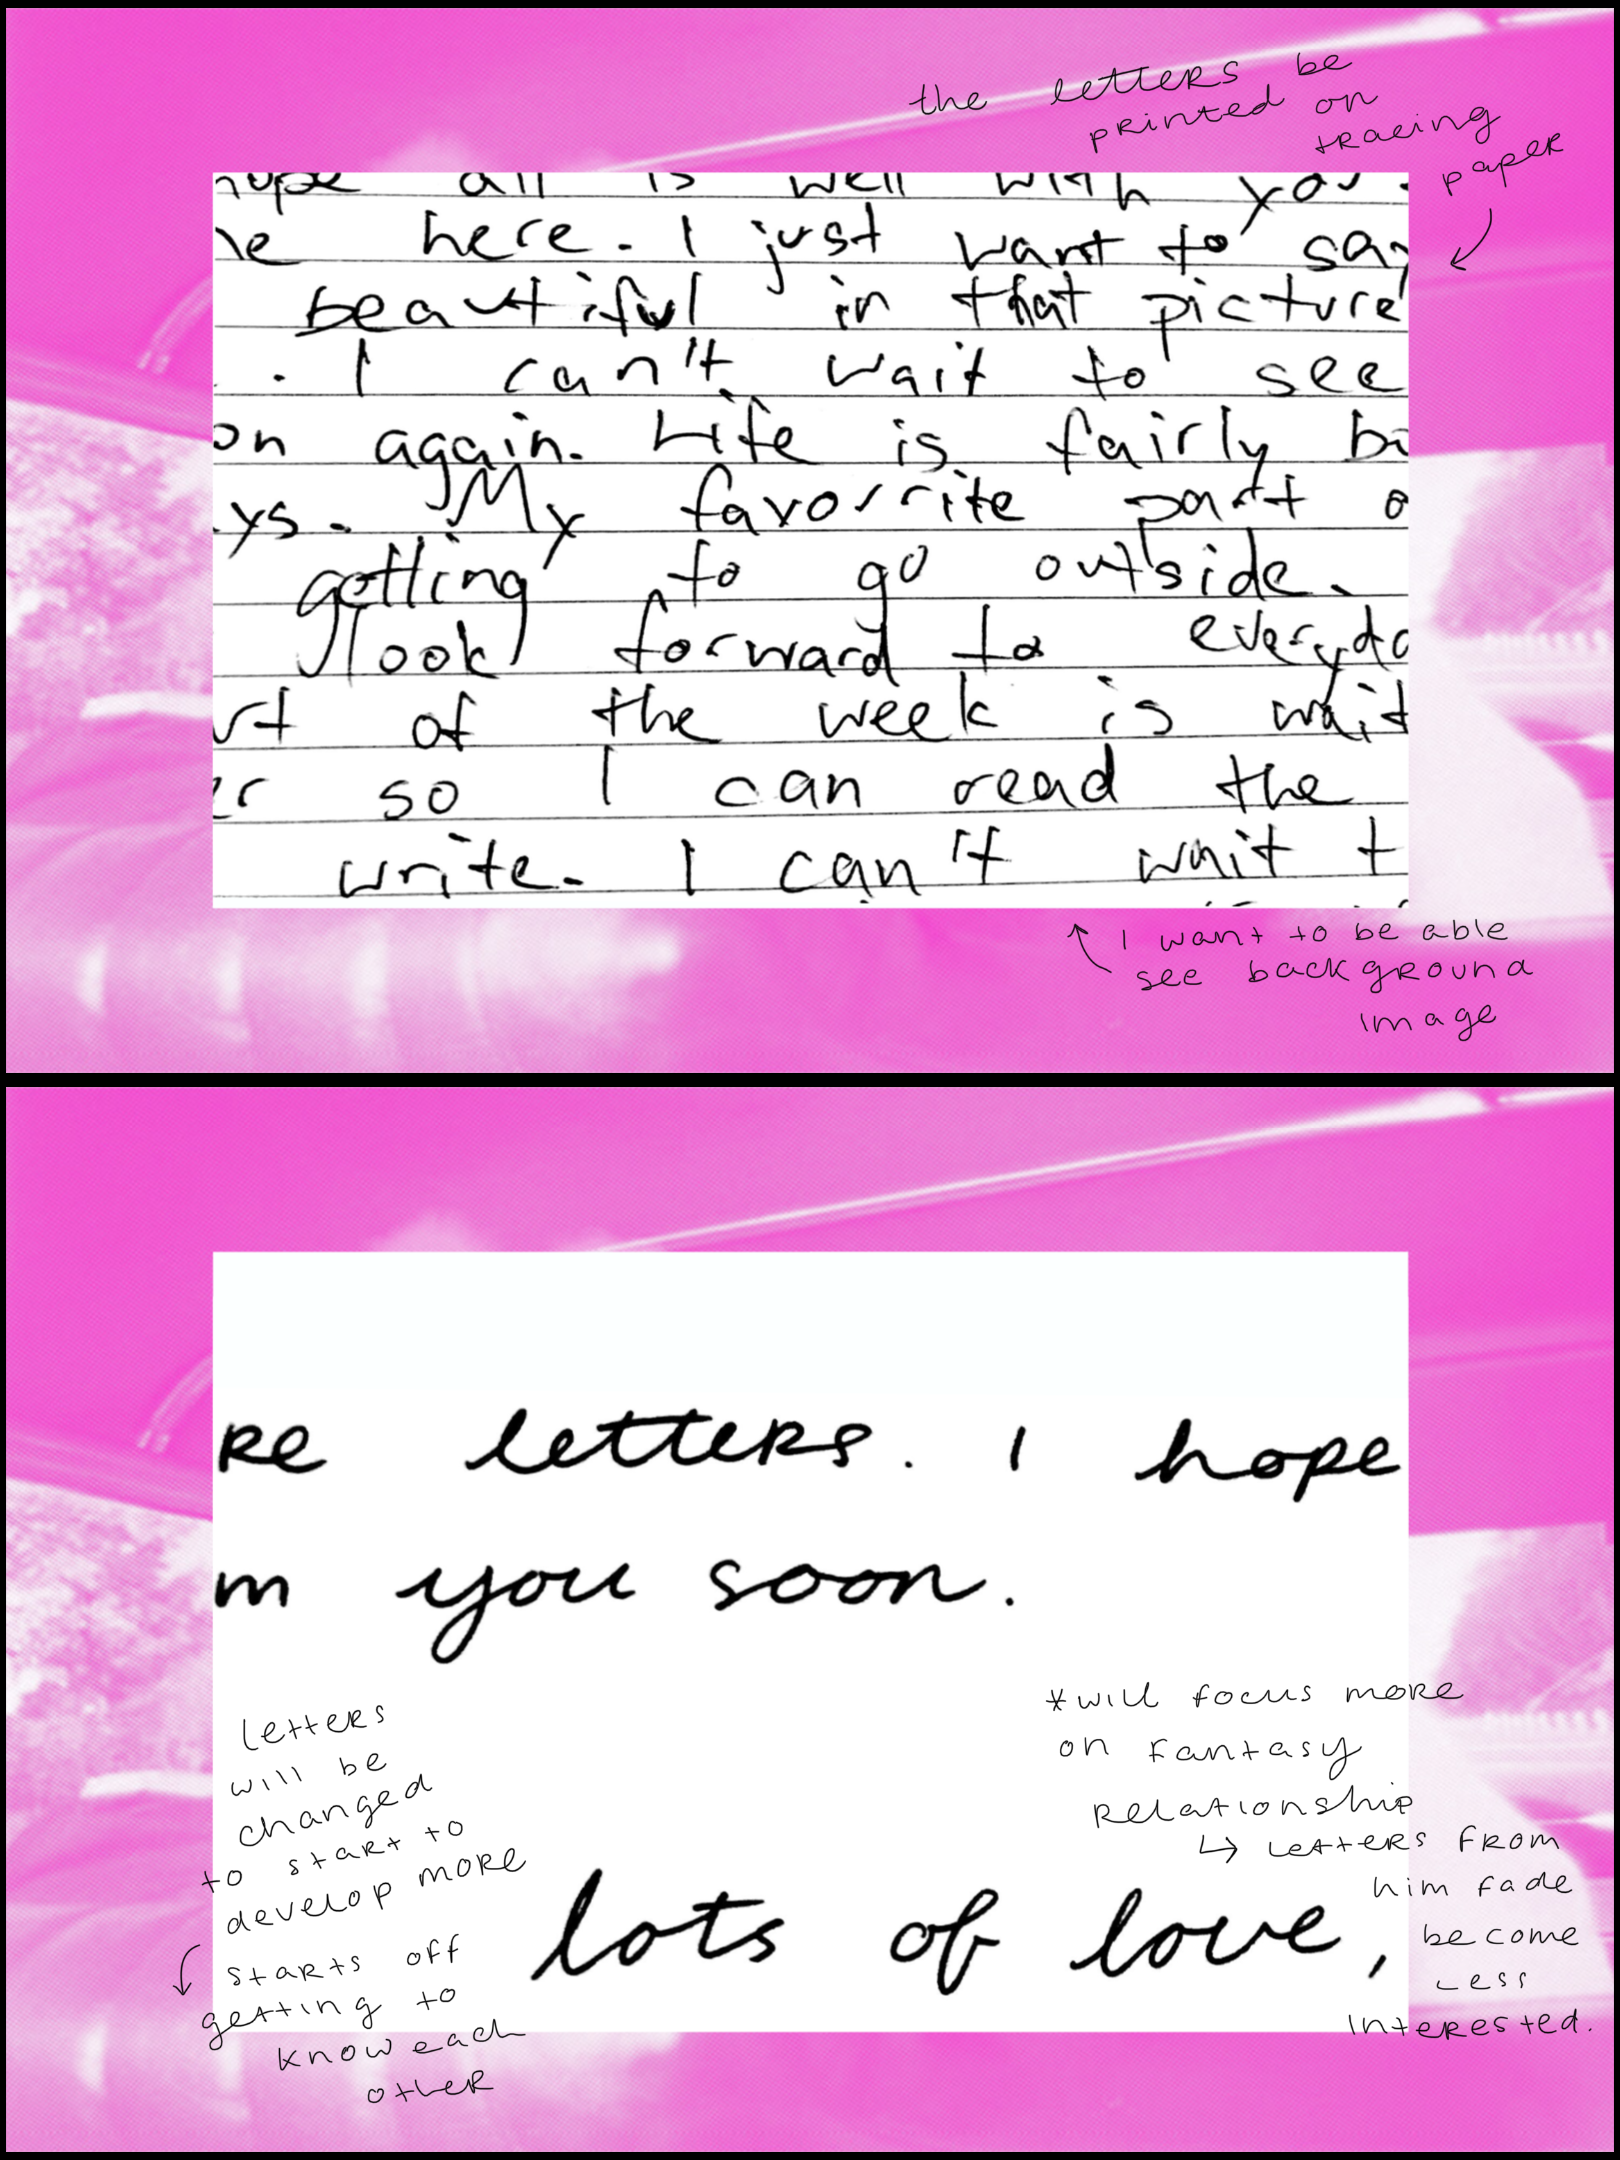 the letters be
printed on
tracing
paper
hope all is well with you.
here. I just want to say
beautiful in that picture
. I can't wait to see
on again. Life is fairly
ys. My favorite part o
getting to go outside.
look forward to everyda
rt of the week is wait
er so I can read the
write. I can't wait t
I want to be able
see background
image
re letters. I hope
m you soon.
letters
will be
changed
to start to
develop more
starts off
getting to
know each
other
*will focus more
on fantasy
relationship
↳ letters from
him fade
become
less
interested.
lots of love,